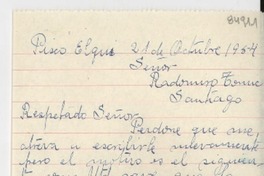 84911
Pisco Elqui 21 de Octubre/1954
Señor
Radomiro Tomic
Santiago
Respetado Señor
Perdone que me
atreva a escribirle nuevamente
pero el motivo es el siguien